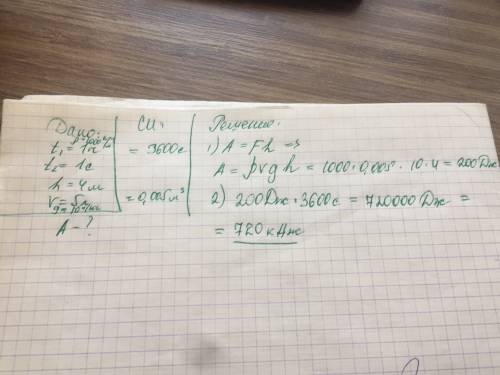 Дано:
t₁ = 1ч
t₂ = 1с
h = 4м
V = 5л
g = 10
A - ?
СИ:
= 3600с
= 0,005м³
Решение:
1) A = Fh =>
A = ρvgh = 1000 · 0,005 · 10 · 4 = 200Дж
2) 200Дж · 3600с = 720000Дж =
= 720кДж